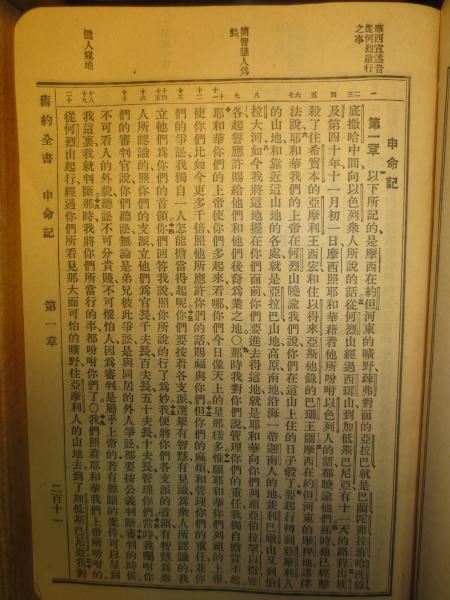 摩西宣述昔從何烈啟行之事
簡智慧人為長
遣人窺地
申命記
第一章 以下所記的是摩西在約但河東的曠野疎弗對面的亞拉巴就是巴蘭陀弗拉班哈洗錄
底撒哈中間向以色列衆人所說的話從何烈山經過西珥山到加低斯巴尼亞有十一天的路程出埃
及第四十年十一月初一日摩西照耶和華藉着他所吩咐以色列人的話都曉諭他們那時他已經擊
殺了住希實本的亞摩利王西宏和住以得來亞斯他錄的巴珊王噩摩西在約但河東的摩押地講律
法說耶和華我們的上帝在何烈山曉諭我們說你們在這山上住的日子彀了要起行轉到亞摩利人
的山地和靠近這山地的各處就是亞拉巴山地高原南地沿海一帶迦南人的地並利巴嫩山又到伯
拉大河如今我將這地擺在你們面前你們要進去得這地就是耶和華向你們列祖亞伯拉罕以撒雅
各起誓應許賜給他們和他們後裔為業之地○那時我對你們說管理你們的重任我獨自擔當不起
耶和華你們的上帝使你們多起來看哪你們今日像天上的星那樣多惟願耶和華你們列祖的上帝
使你們比如今更多千倍照他所應許你們的話賜福與你們但你們的麻煩和管理你們的重任並你
們的爭訟我獨自一人怎能擔當得起呢你們要按着各支派選舉有智慧有見識為衆人所認識的我
立他們為你們的首領你們回答我說照你所說的行了為妙我便將你們各支派的首領有智慧為衆
人所認識的照你們的支派立他們為官長千夫長百夫長五十夫長十夫長管理你們當時我囑咐你
們的審判官說你們聽訟無論是弟兄彼此爭訟是與同居的外人爭訟都要按公義判斷審判的時候
不可看人的外貌聽訟不可分貴賤不可懼怕人因為審判是屬乎上帝的若有難斷的案件可以呈到
我這裏我就判斷那時我將你們所當行的事都吩咐你們了○我們照着耶和華我們上帝所吩咐的
從何烈山起行經過你們所看見那大而可怕的曠野往亞摩利人的山地去到了加低斯巴尼亞我對
舊約全書 申命記 第一章 二百十一